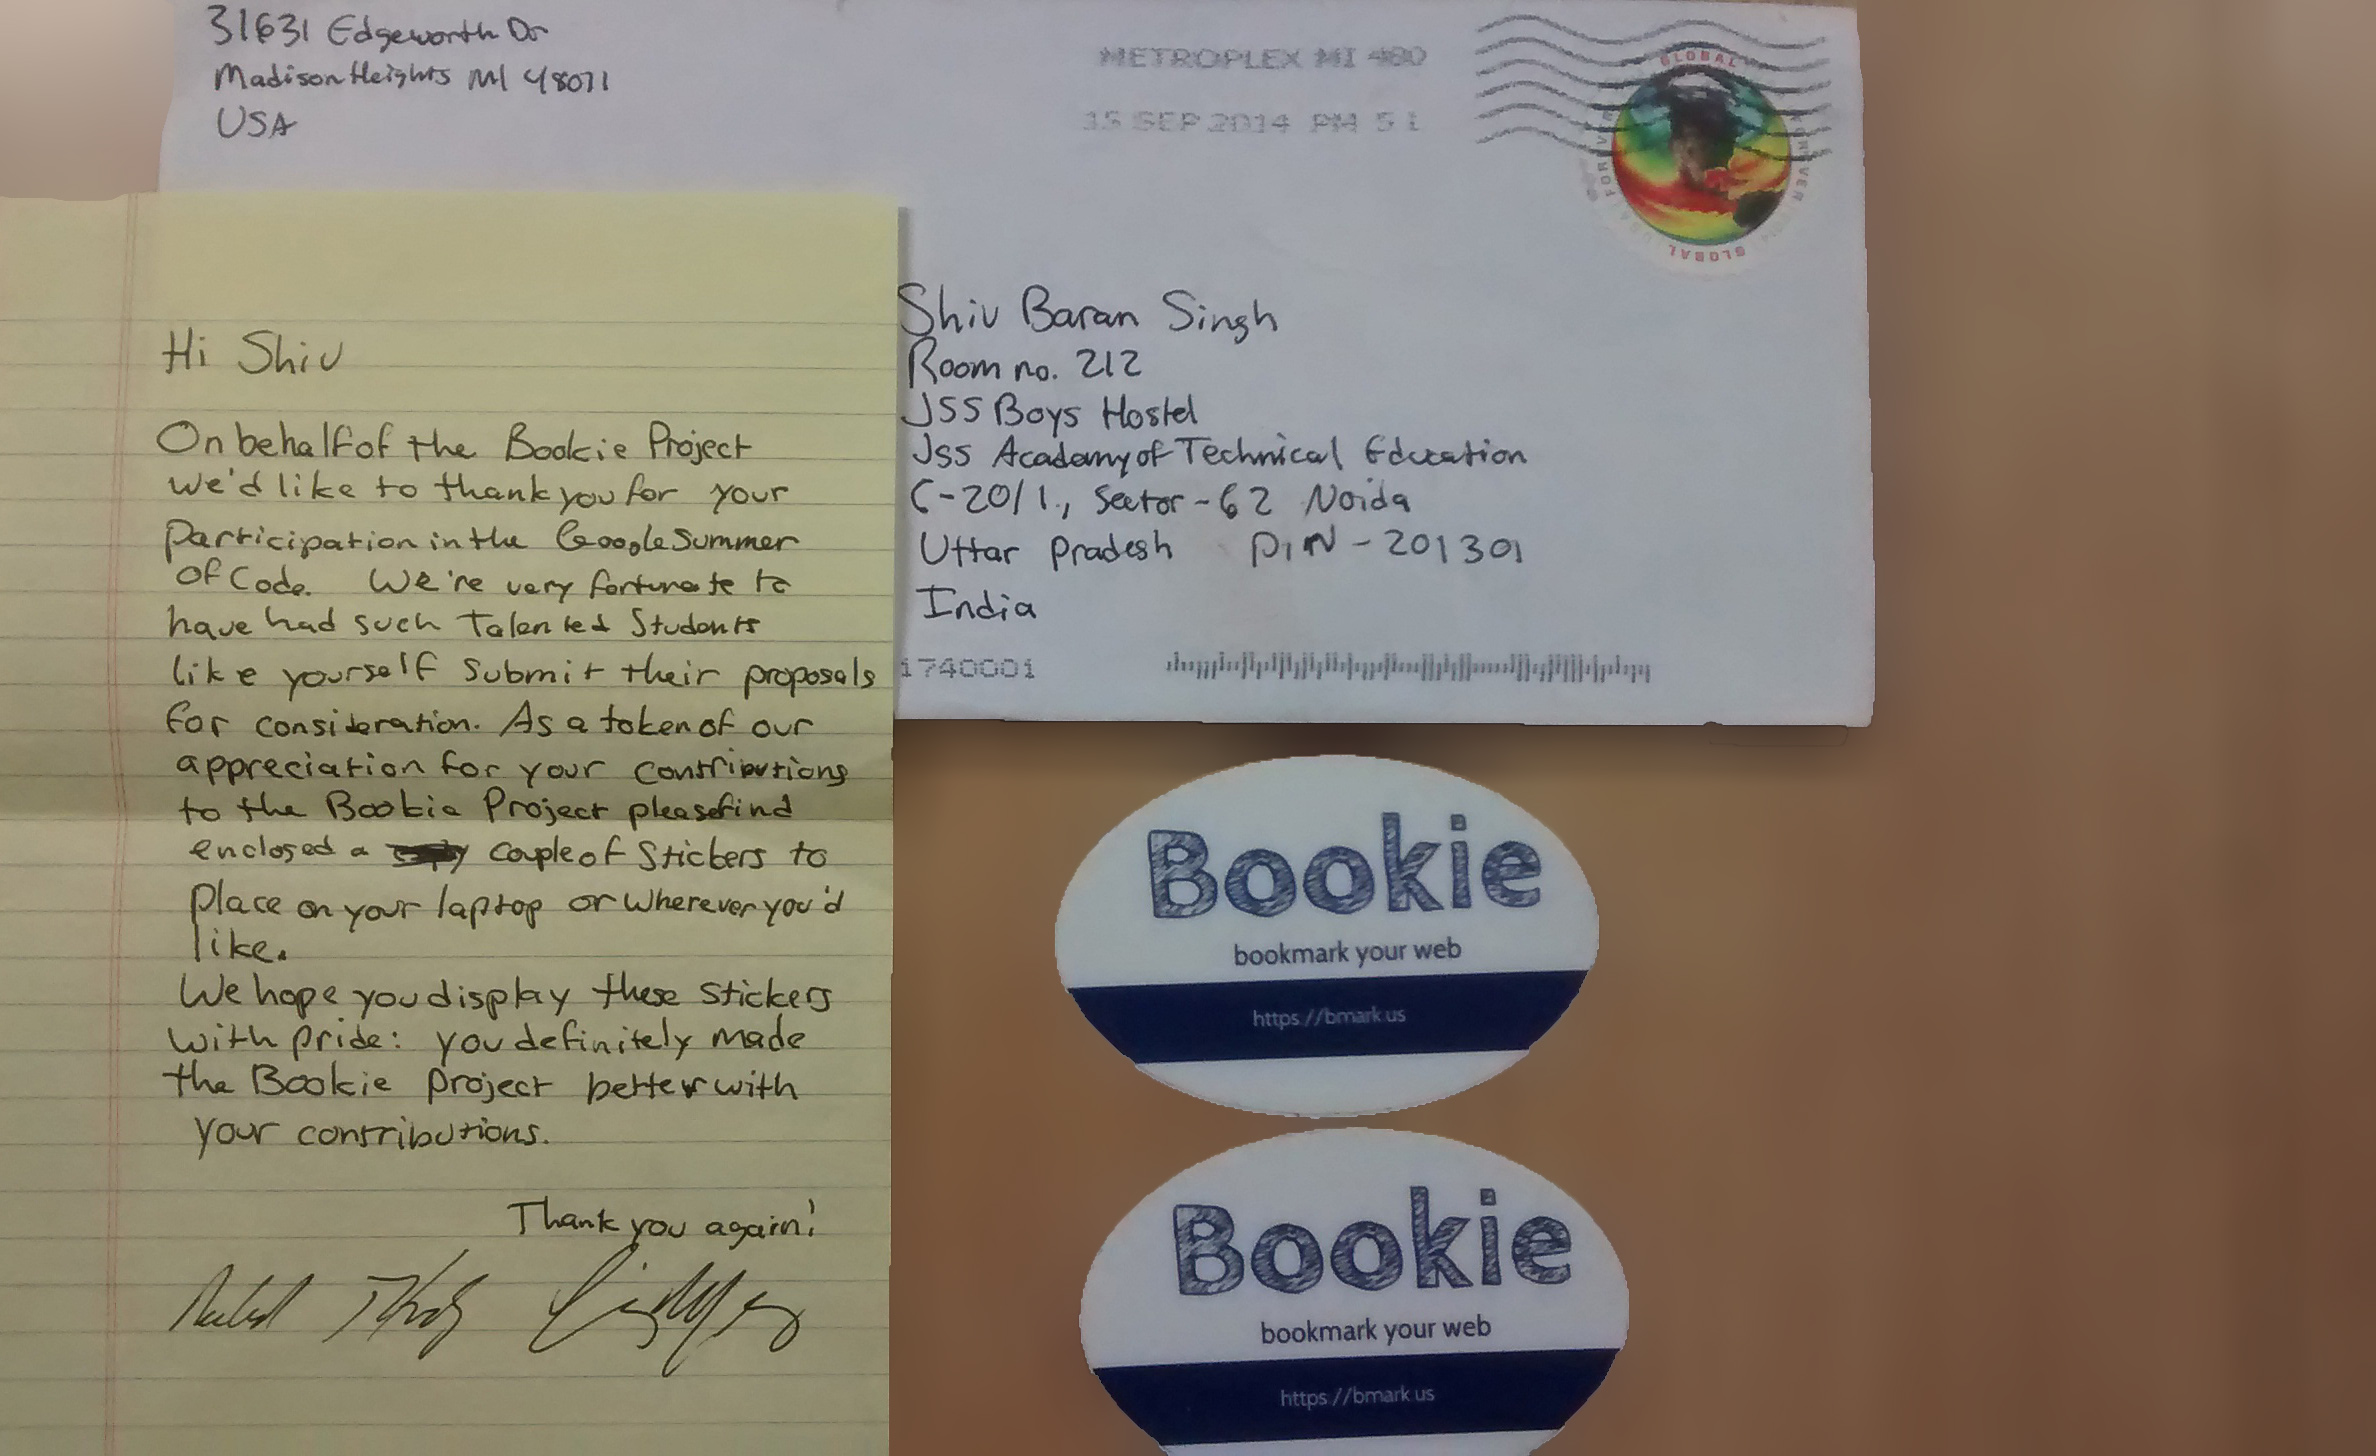 31631 Edgeworth Dr
Madison Heights MI 48071
USA
METROPLEX MI 480
15 SEP 2014 PM 5 1
GLOBAL
FOREVER
FOREVER
GLOBAL
Shiv Baran Singh
Room no. 212
JSS Boys Hostel
Jss Academy of Technical Education
C-20/1, Sector-62 Noida
Uttar Pradesh PIN-201301
India
1740001
Hi Shiv
On behalf of the Bookie Project
we'd like to thank you for your
participation in the Google Summer
Of Code. We're very fortunate to
have had such Talented Students
like yourself submit their proposals
for consideration. As a token of our
appreciation for your contributions
to the Bookie Project please find
enclosed a couple of stickers to
place on your laptop or wherever you'd
like.
We hope you display these stickers
with pride: you definitely made
the Bookie project better with
your contributions.
Thank you again!
Bookie
bookmark your web
https://bmark.us
Bookie
bookmark your web
https://bmark.us